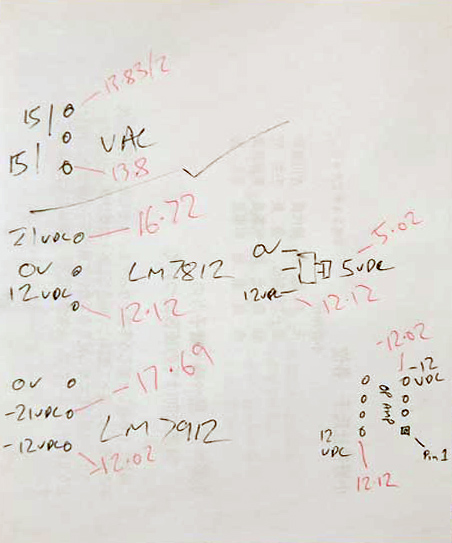 13.83/2
15
VAC
15
13.8
21VDC
16.72
0V
LM7812
12VDC
12.12
0V
5.02
5VDC
12VDC
12.12
0V
-17.69
-21VDC
-12VDC
LM7912
-12.02
-12.02
-12
VDC
OP AMP
12
VDC
Pin 1
12.12